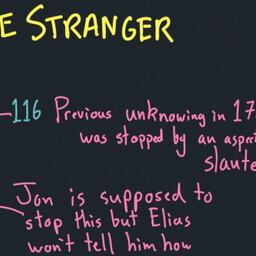 E STRANGER
116 Previous unknowing in 17
was stopped by an aspec
slaute
Jon is supposed to
stop this but Elias
won't tell him how